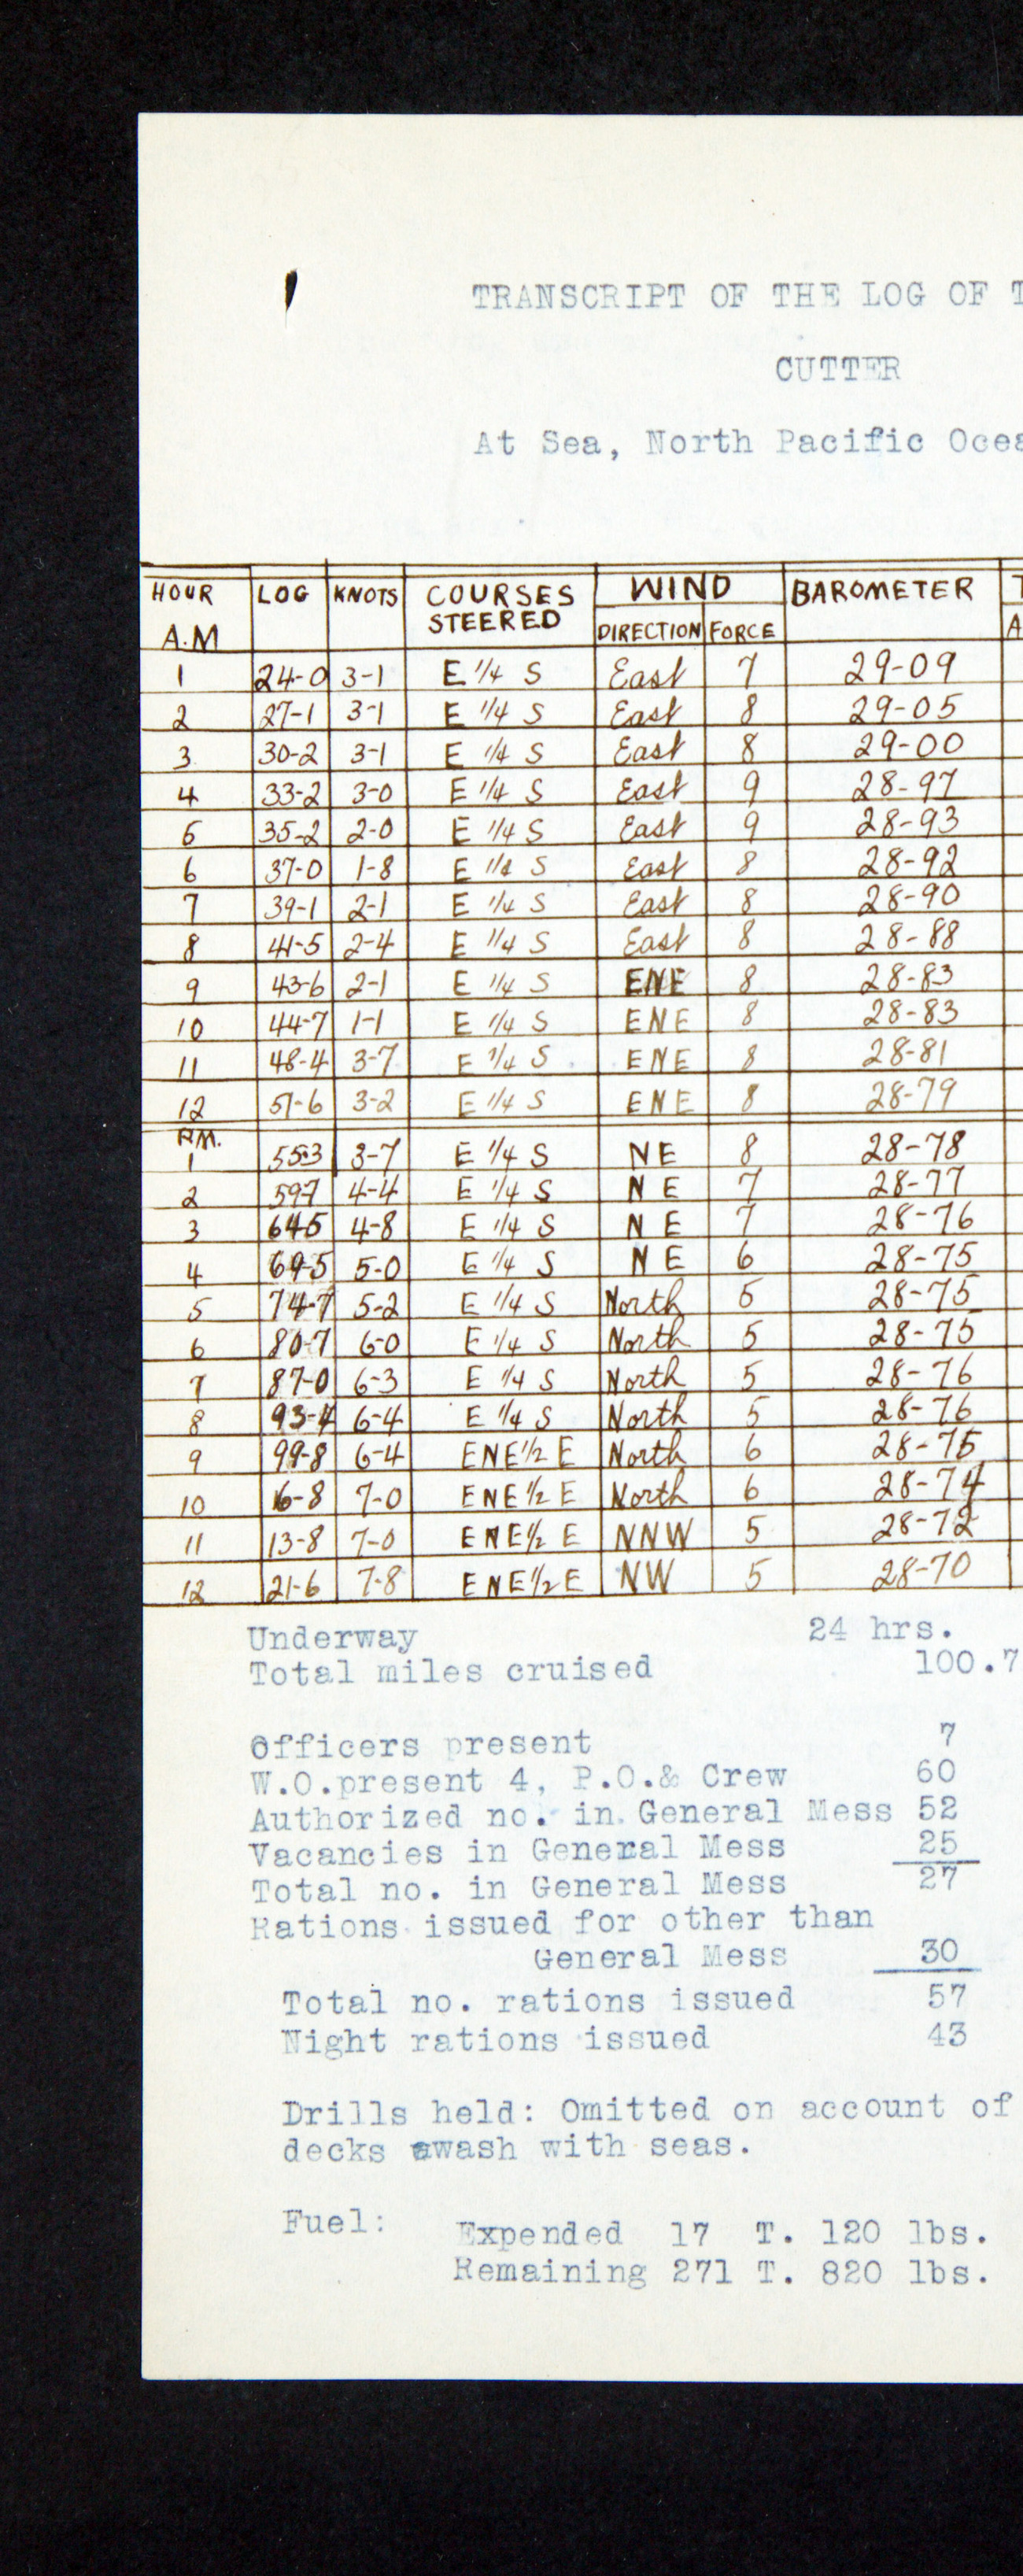 TRANSCRIPT OF THE LOG OF T
CUTTER
At Sea, North Pacific Ocea
HOUR LOG KNOTS COURSES STEERED WIND BAROMETER T
A.M DIRECTION FORCE A
1 24-0 3-1 E 1/4 S East 7 29-09
2 27-1 3-1 E 1/4 S East 8 29-05
3 30-2 3-1 E 1/4 S East 8 29-00
4 33-2 3-0 E 1/4 S East 9 28-97
5 35-2 2-0 E 1/4 S East 9 28-93
6 37-0 1-8 E 1/4 S East 8 28-92
7 39-1 2-1 E 1/4 S East 8 28-90
8 41-5 2-4 E 1/4 S East 8 28-88
9 43-6 2-1 E 1/4 S ENE 8 28-83
10 44-7 1-1 E 1/4 S ENE 8 28-83
11 48-4 3-7 E 1/4 S ENE 8 28-81
12 51-6 3-2 E 1/4 S ENE 8 28-79
P.M.
1 55-3 3-7 E 1/4 S NE 8 28-78
2 59-7 4-4 E 1/4 S NE 7 28-77
3 64-5 4-8 E 1/4 S NE 7 28-76
4 69-5 5-0 E 1/4 S NE 6 28-75
5 74-7 5-2 E 1/4 S North 5 28-75
6 80-7 6-0 E 1/4 S North 5 28-75
7 87-0 6-3 E 1/4 S North 5 28-76
8 93-4 6-4 E 1/4 S North 5 28-76
9 99-8 6-4 ENE 1/2 E North 6 28-75
10 6-8 7-0 ENE 1/2 E North 6 28-74
11 13-8 7-0 ENE 1/2 E NNW 5 28-72
12 21-6 7-8 ENE 1/2 E NW 5 28-70
Underway 24 hrs.
Total miles cruised 100.7
Officers present 7
W.O.present 4, P.O.& Crew 60
Authorized no. in General Mess 52
Vacancies in General Mess 25
Total no. in General Mess 27
Rations issued for other than
General Mess 30
Total no. rations issued 57
Night rations issued 43
Drills held: Omitted on account of
decks awash with seas.
Fuel: Expended 17 T. 120 lbs.
Remaining 271 T. 820 lbs.